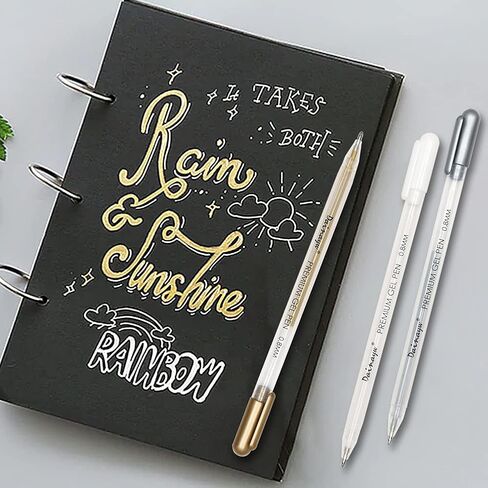 It TAKES
BOTH
Rain
& Sunshine
RAINBOW
Dainayw® PREMIUM GEL PEN 0.8MM
Dainayw® PREMIUM GEL PEN 0.8MM
Dainayw® PREMIUM GEL PEN 0.8MM